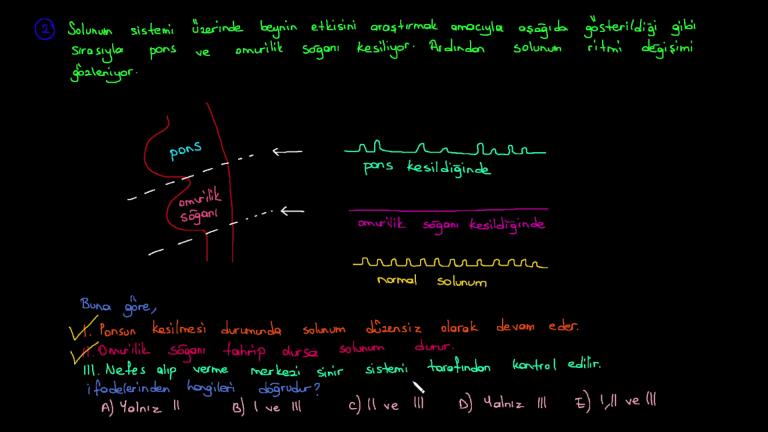 2) Solunum sistemi üzerinde beynin etkisini araştırmak amacıyla aşağıda gösterildiği gibi
sırasıyla pons ve omurilik soğanı kesiliyor. Ardından solunum ritmi değişimi
gözleniyor.
pons
omurilik
soğanı
pons kesildiğinde
omurilik soğanı kesildiğinde
normal solunum
Buna göre,
I. Ponsun kesilmesi durumunda solunum düzensiz olarak devam eder.
II. Omurilik soğanı tahrip olursa solunum durur.
III. Nefes alıp verme merkezi sinir sistemi tarafından kontrol edilir.
ifadelerinden hangileri doğrudur?
A) Yalnız II B) I ve III C) II ve III D) Yalnız III E) I, II ve III